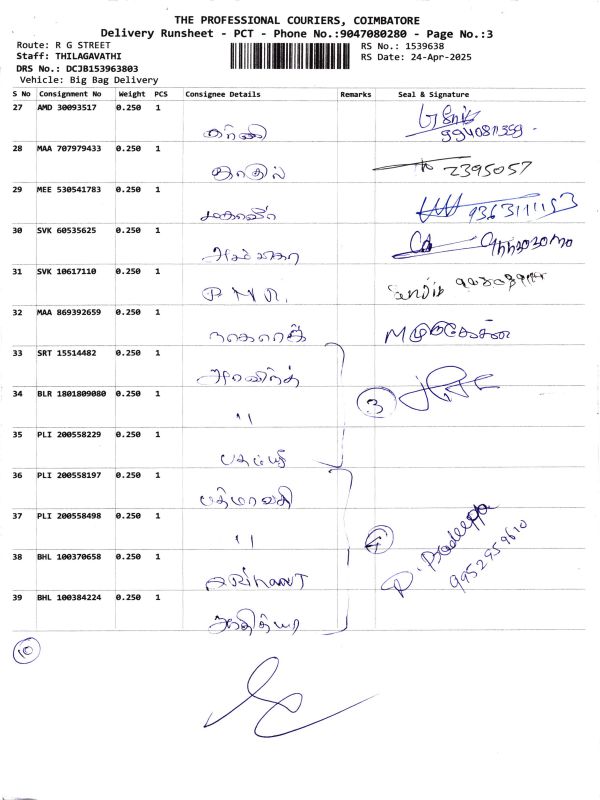 THE PROFESSIONAL COURIERS, COIMBATORE
Delivery Runsheet - PCT - Phone No.:9047080280 - Page No.:3
Route: R G STREET
RS No.: 1539638
Staff: THILAGAVATHI
RS Date: 24-Apr-2025
DRS No.: DCJB153963803
Vehicle: Big Bag Delivery
S No Consignment No Weight PCS Consignee Details Remarks Seal & Signature
27 AMD 30093517 0.250 1
28 MAA 707979433 0.250 1
2395057
29 MEE 530541783 0.250 1
9363111153
30 SVK 60535625 0.250 1
31 SVK 10617110 0.250 1
P M R.
32 MAA 869392659 0.250 1
நாகராஜ் M முருகேசன்
33 SRT 15514482 0.250 1
அரவிந்த்
34 BLR 1801809080 0.250 1
11 3
35 PLI 200558229 0.250 1
36 PLI 200558197 0.250 1
பத்மாவதி
37 PLI 200558498 0.250 1
11 4 P. Pradeepa
9952959610
38 BHL 100370658 0.250 1
ARIHANT
39 BHL 100384224 0.250 1
ஆதித்யா
10